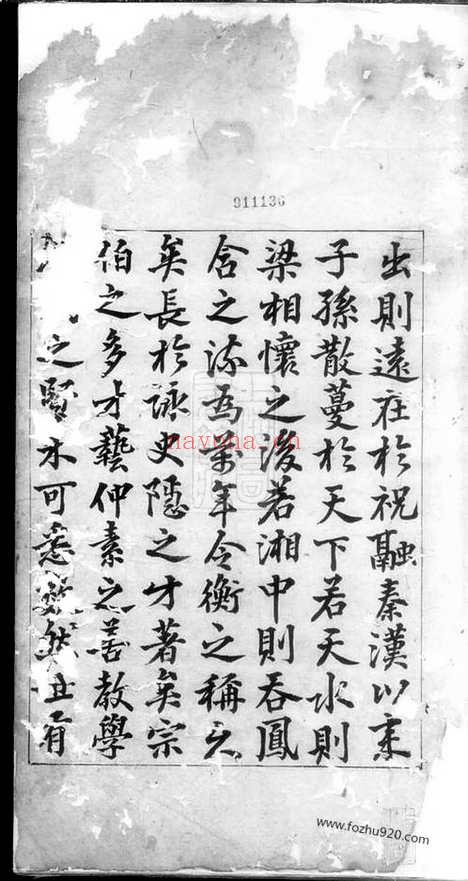 911136
出則遠在於祝融秦漢以來
子孫散蔓於天下若天水則
梁相懷之後若湘中則吞鳳
含之流為年令衡之稱
矣長於詠史隱之才著矣宗
伯之多才藝仲素之善教學
之賢不可悉然且有
nayona.cn
www.fozhu920.com